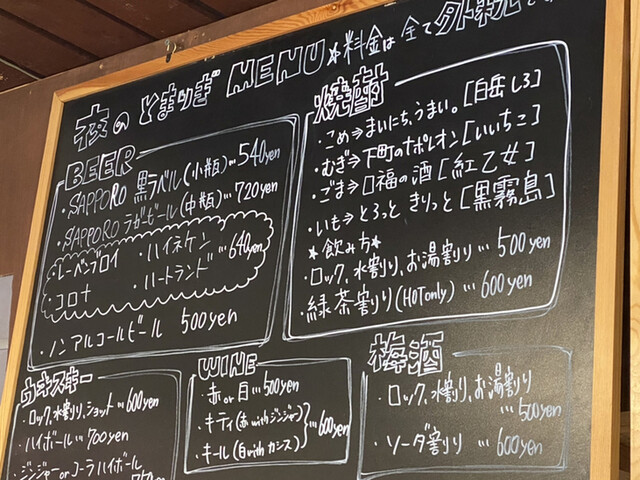 夜のとまりぎ MENU ☆料金は全て外税で
BEER
・SAPPORO 黒ラベル(小瓶)…540yen
・SAPPORO ラガービール(中瓶)…720yen
・レーベンブロイ ・ハイネケン
・コロナ ・ハートランド …640yen
・ノンアルコールビール 500yen
焼酎
・こめ⇒まいにち、うまい。[白岳しろ]
・むぎ⇒下町のナポレオン[いいちこ]
・ごま⇒口福の酒[紅乙女]
・いも⇒とろっと きりっと[黒霧島]
*飲み方*
・ロック、水割り、お湯割り…500yen
・緑茶割り(HOTonly)…600yen
ウヰスキー
・ロック、水割り、ショット…600yen
・ハイボール…700yen
・ジンジャーorコーラハイボール
WINE
・赤or白…500yen
・キティ(赤withジンジャー)
・キール(白withカシス) …600yen
梅酒
・ロック、水割り、お湯割り
…500yen
・ソーダ割り…600yen